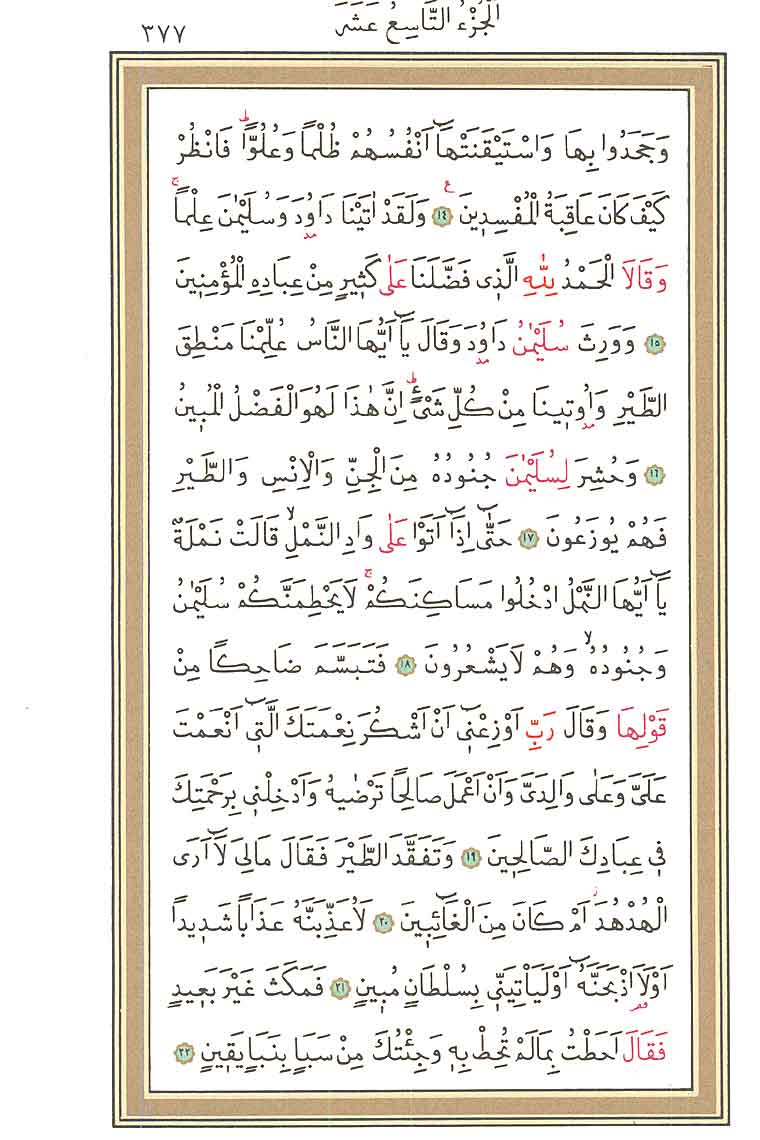 الْجُزْءُ التَّاسِعُ عَشَرَ
٣٧٧
وَجَحَدُوا بِهَا وَاسْتَيْقَنَتْهَٓا اَنْفُسُهُمْ ظُلْمًا وَعُلُوًّاۜ فَانْظُرْ
كَيْفَ كَانَ عَاقِبَةُ الْمُفْسِد۪ينَ ﴿١٤﴾ وَلَقَدْ اٰتَيْنَا دَاوُ۫دَ وَسُلَيْمٰنَ عِلْمًاۚ
وَقَالَا الْحَمْدُ لِلّٰهِ الَّذ۪ي فَضَّلَنَا عَلٰى كَث۪يرٍ مِنْ عِبَادِهِ الْمُؤْمِن۪ينَ
﴿١٥﴾ وَوَرِثَ سُلَيْمٰنُ دَاوُ۫دَ وَقَالَ يَٓا اَيُّهَا النَّاسُ عُلِّمْنَا مَنْطِقَ
الطَّيْرِ وَاُو۫ت۪ينَا مِنْ كُلِّ شَيْءٍۜ اِنَّ هٰذَا لَهُوَ الْفَضْلُ الْمُب۪ينُ
﴿١٦﴾ وَحُشِرَ لِسُلَيْمٰنَ جُنُودُهُ مِنَ الْجِنِّ وَالْاِنْسِ وَالطَّيْرِ
فَهُمْ يُوزَعُونَ ﴿١٧﴾ حَتّٰٓى اِذَٓا اَتَوْا عَلٰى وَادِ النَّمْلِۙ قَالَتْ نَمْلَةٌ
يَٓا اَيُّهَا النَّمْلُ ادْخُلُوا مَسَاكِنَكُمْۚ لَا يَحْطِمَنَّكُمْ سُلَيْمٰنُ
وَجُنُودُهُۙ وَهُمْ لَا يَشْعُرُونَ ﴿١٨﴾ فَتَبَسَّمَ ضَاحِكًا مِنْ
قَوْلِهَا وَقَالَ رَبِّ اَوْزِعْن۪ٓي اَنْ اَشْكُرَ نِعْمَتَكَ الَّت۪ٓي اَنْعَمْتَ
عَلَيَّ وَعَلٰى وَالِدَيَّ وَاَنْ اَعْمَلَ صَالِحًا تَرْضٰيهُ وَاَدْخِلْن۪ي بِرَحْمَتِكَ
ف۪ي عِبَادِكَ الصَّالِح۪ينَ ﴿١٩﴾ وَتَفَقَّدَ الطَّيْرَ فَقَالَ مَا لِيَ لَٓا اَرَى
الْهُدْهُدَۘ اَمْ كَانَ مِنَ الْغَٓائِب۪ينَ ﴿٢٠﴾ لَاُعَذِّبَنَّهُ عَذَابًا شَد۪يدًا
اَوْ لَا۬اَذْبَحَنَّهُٓ اَوْ لَيَأْتِيَنّ۪ي بِسُلْطَانٍ مُب۪ينٍ ﴿٢١﴾ فَمَكَثَ غَيْرَ بَع۪يدٍ
فَقَالَ اَحَطْتُ بِمَا لَمْ تُحِطْ بِه۪ وَجِئْتُكَ مِنْ سَبَاٍ بِنَبَاٍ يَق۪ينٍ ﴿٢٢﴾